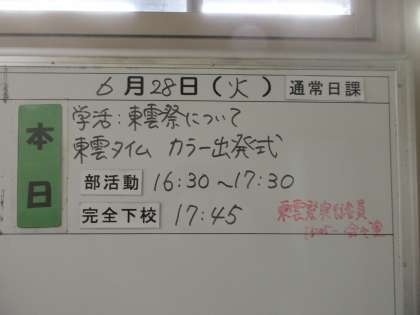 6月28日(火) 通常日課
本日
学活:東雲祭について
東雲タイム カラー出発式
部活動 16:30~17:30
完全下校 17:45
東雲祭実行委員